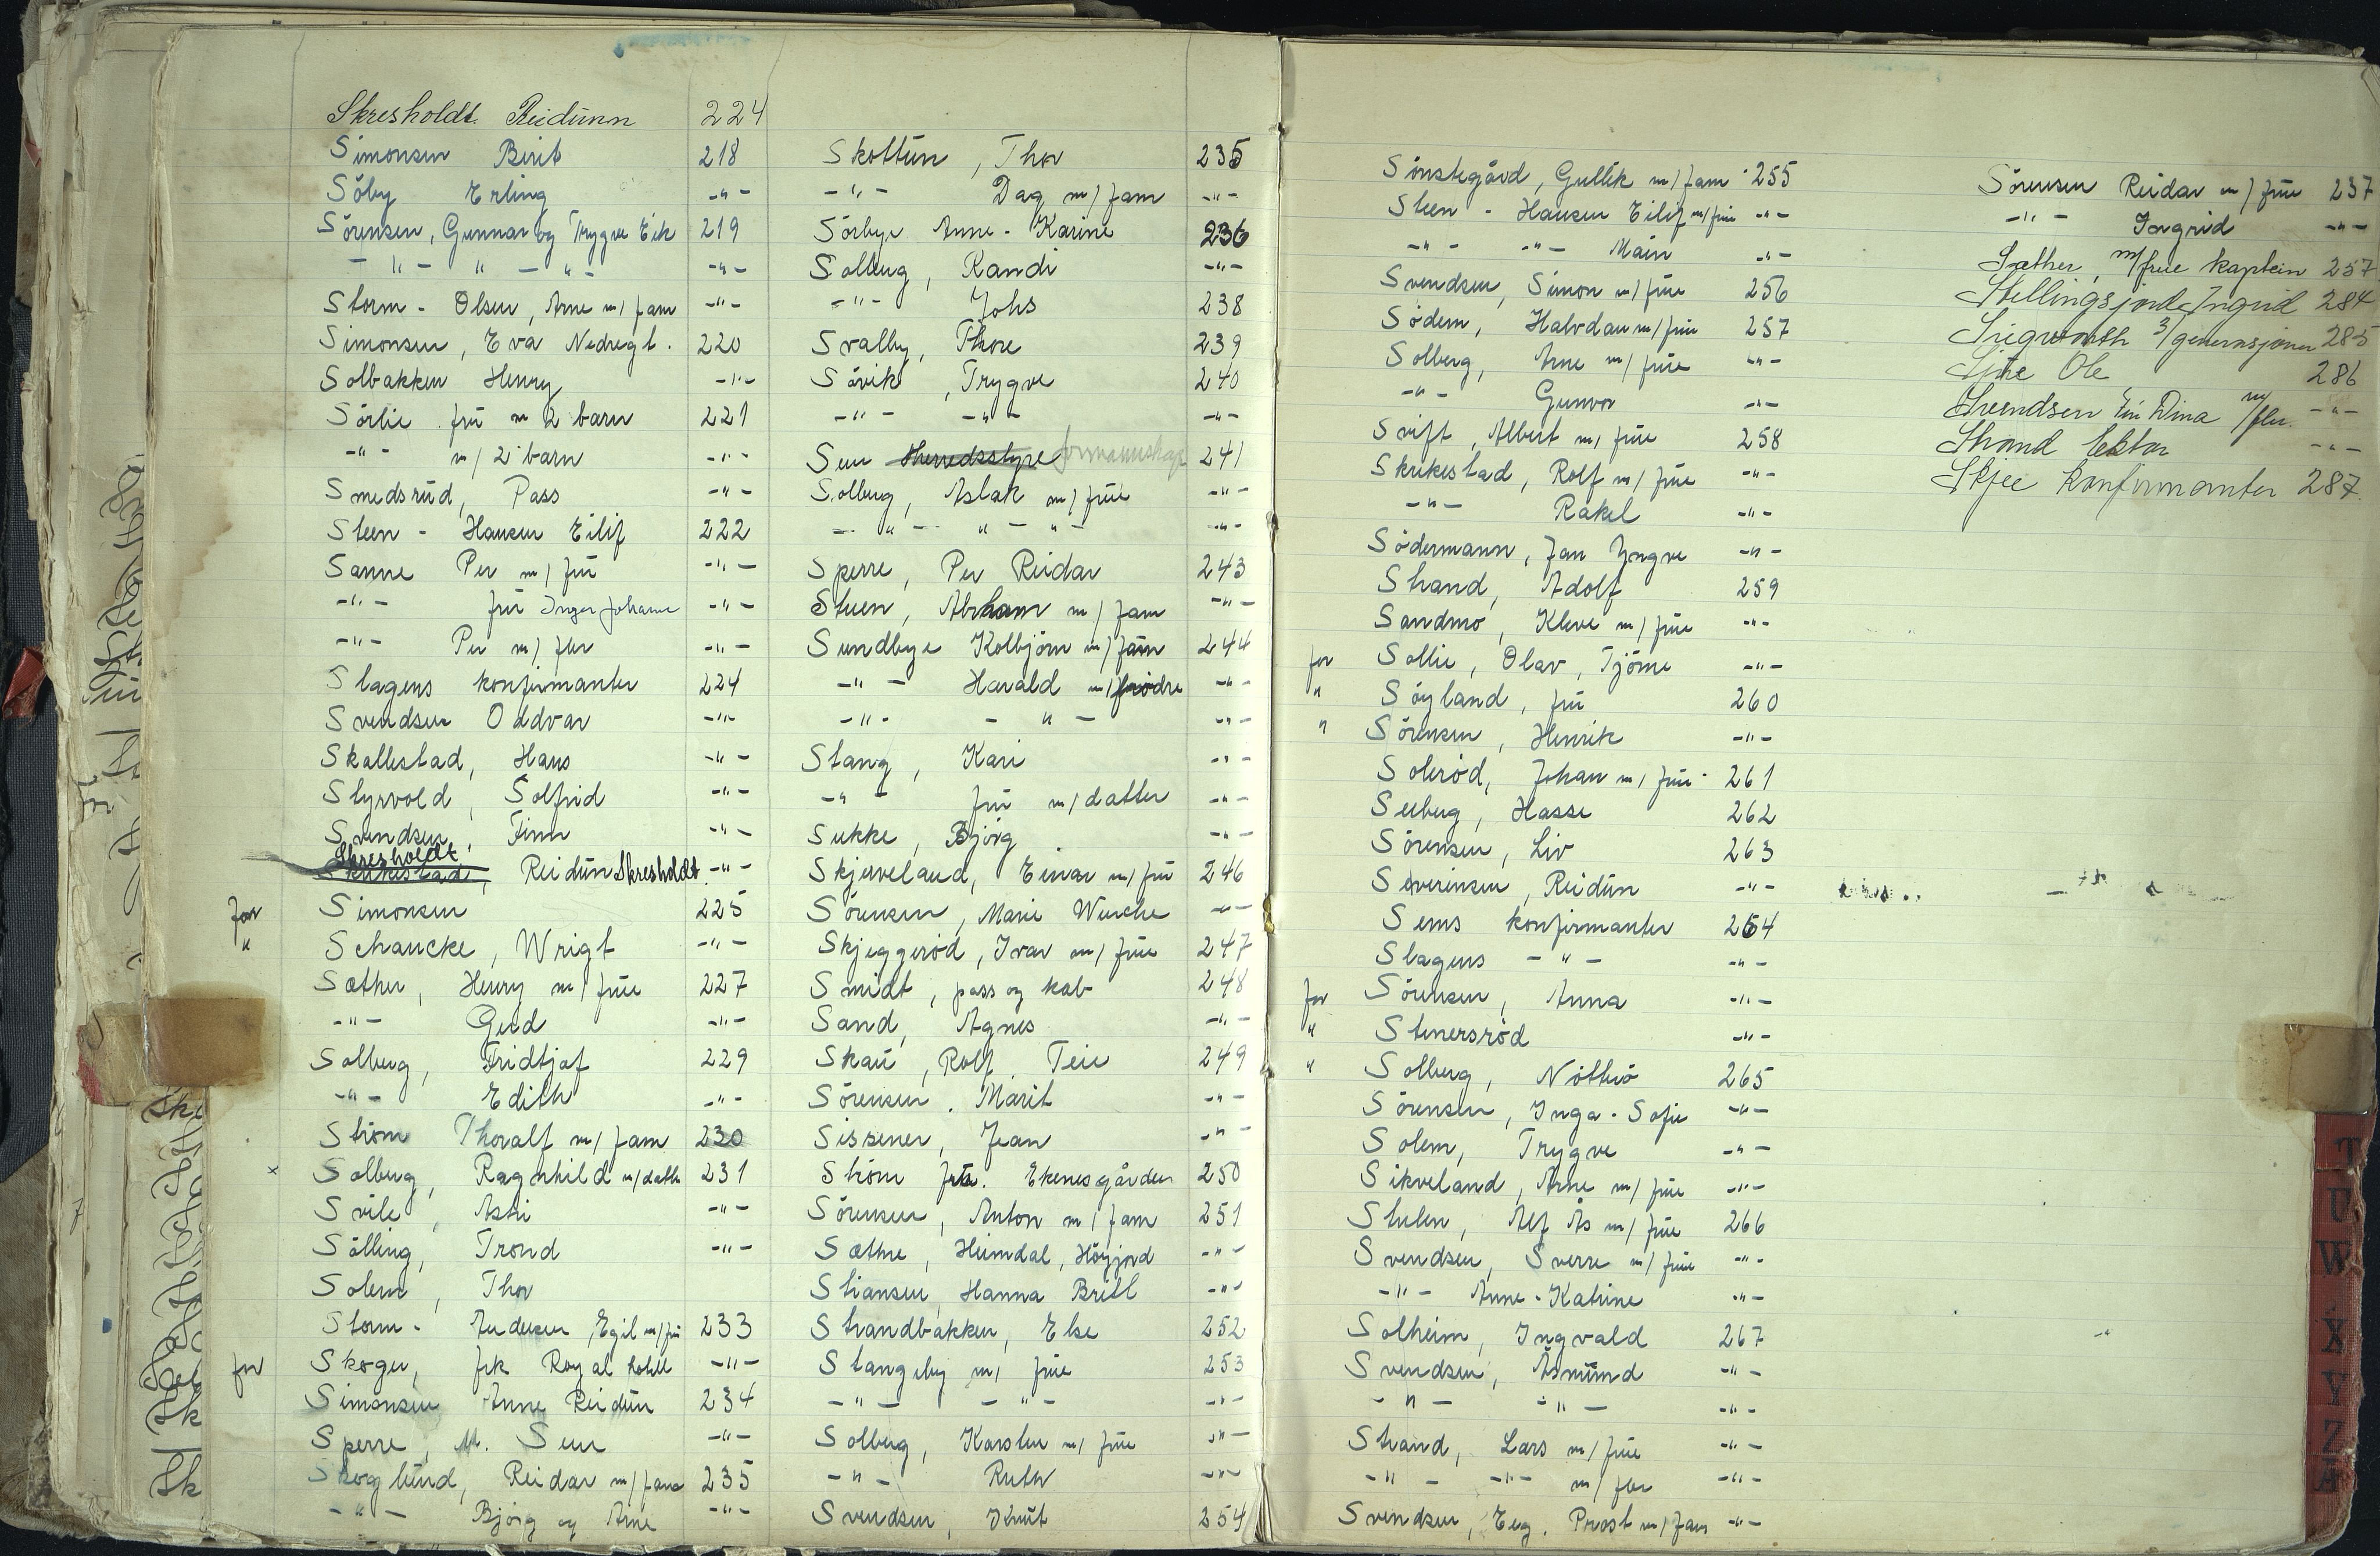 Skresholdt Reidunn 224
Simonsen Berit 218
Söby Erling -"-
Sörensen, Gunnar og Trygve Eik 219
-"- " -"- -"-
Storm - Olsen, Arne m/fam -"-
Simonsen, Eva Nedregt. 220
Solbakken Henry -"-
Sörlie frü m 2 barn 221
-"- m/2 barn -"-
Smedsrüd, Pass -"-
Steen - Hansen Eilif 222
Sanne Per m/frü -"-
-"- frü Inger Johanne -"-
-"- Per m/fler -"-
Slagens konfirmanter 224
Svendsen Oddvar -"-
Skallestad, Hans -"-
Styrvold, Solfrid -"-
Svendsen, Finn -"-
Skresholdt
Skrikestad, Reidün Skresholdt -"-
for Simonsen 225
" Schancke, Wrigt -"-
Sæther, Henry m/früe 227
-"- Gerd -"-
Solberg, Fridtjof 229
-"- Edith -"-
Ström Thoralf m/fam 230
x Solberg, Ragnhild m/datter 231
Svile, Astri -"-
Sölling, Trond -"-
Solem, Thor
Storm - Andersen, Egil m/frü 233
for Skoger, frk Royal hotell -"-
Simonsen Anne Reidün 234
Sperre, M. Sem -"-
Skoglünd, Reidar m/fam 235
-"- Bjørg og Arne -"-
Skottün, Thor 235
-"- Dag m/fam -"-
Sörbye Anne-Karine 236
Solberg, Randi -"-
-"- Johs 238
Svalby, Thore 239
Sövik, Trygve 240
-"- -"- -"-
Sem Herredsstyre formannskap 241
Solberg, Aslak m/früe -"-
-"- "-"- -"-
Sperre, Per Reidar 243
Steen, Abraham m/fam -"-
Sundbye Kolbjörn m/fam 244
-"- Harald m/brödre -"-
-"- -"- -"-
Stang, Kari -"-
-"- frü m/datter -"-
Sukke, Björg -"-
Skjerveland, Einar m/frü 246
Sörensen, Marie Wenche -"-
Skjeggeröd, Ivar m/früe 247
Smidt, pass og kab 248
Sand, Agnes -"-
Skaü, Rolf. Teie 249
Sörensen, Marit -"-
Sissener, Jean -"-
Ström frü. Ekenesgården 250
Sörensen, Anton m/fam 251
Sæthre, Heimdal, Höyjord -"-
Stiansen, Hanna Britt -"-
Strandbakken, Else 252
Stangeby m/früe 253
-"- -"- -"-
Solberg, Karsten m/früe -"-
-"- Ruth -"-
Svendsen, Knüt 254
Sönstegård, Gullik m/fam 255
Steen - Hansen Eilif m/früe -"-
-"- -"- Main -"-
Svendsen, Simon m/früe 256
Södem, Halvdan m/früe 257
Solberg, Arne m/früe -"-
-"- Gunvor -"-
Svift, Albert m/früe 258
Skrikestad, Rolf m/früe -"-
-"- Rakel -"-
Södermann, Jan Yngve -"-
Strand, Adolf 259
Sandmo, Kleve m/früe -"-
for Sollie, Olav, Tjöme -"-
" Söyland, frü 260
" Sörensen, Henrik -"-
Soleröd, Johan m/früe 261
Seeberg, Hasse 262
Sörensen, Liv 263
Severinsen, Reidün -"-
Sems konfirmanter 264
Slagens -"- -"-
for Sörensen, Anna -"-
" Stenersröd -"-
" Solberg, Nötterö 265
Sörensen, Inga-Sofie -"-
Solem, Trygve -"-
Sikveland, Arne m/früe -"-
Stulen, Alf Ås m/früe 266
Svendsen, Sverre m/früe -"-
-"- Anne-Katrine -"-
Solheim, Ingvald 267
Svendsen, Åsmünd -"-
-"- -"- -"-
Strand, Lars m/früe -"-
-"- -"- m/fler -"-
Svendsen, Eug. Prost m/fam -"-
Sörensen Reidar m/früe 237
-"- Ingrid -"-
Sæther, m/frue kaptein 257
Stellingsjordet Ingrid 284
3/generasjoner 285
Ole 286
Svendsen Dina m/fler. -"-
Strand lektor -"-
Skjee Konfirmanter 287
T
U
W
X
Y
Z
Æ